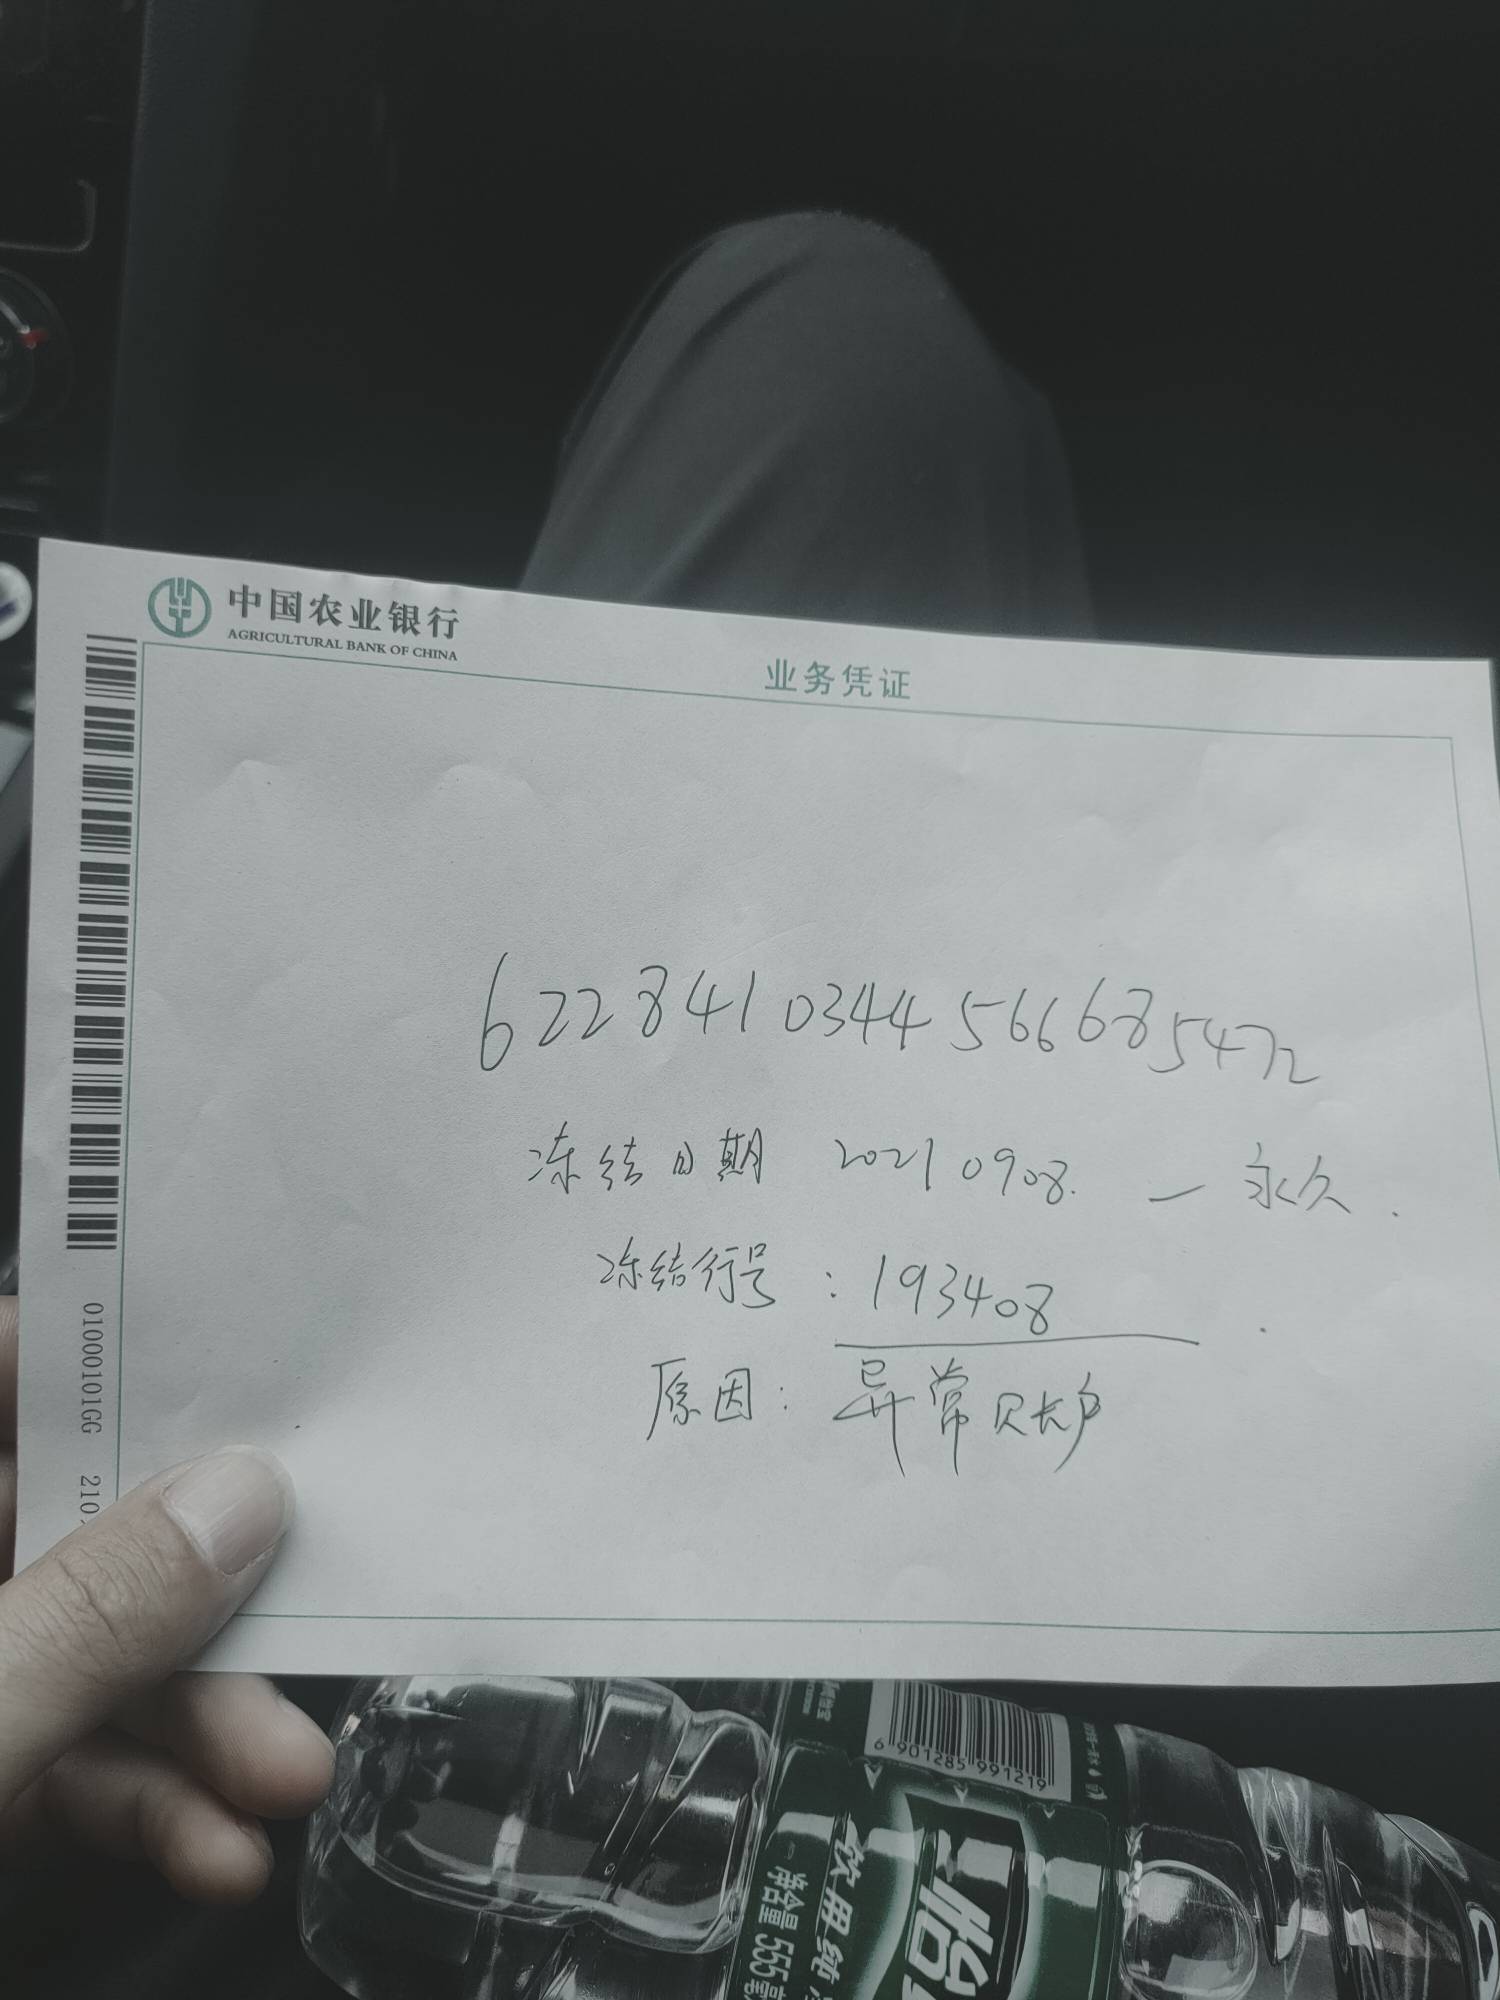 中国农业银行
AGRICULTURAL BANK OF CHINA
业务凭证
6228410344566685472
冻结日期 20210908. — 永久.
冻结行号:193408
原因:异常账户
01000101GG 210
6 901285 991219
饮用纯净
净含量 555毫
怡